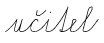 učitel